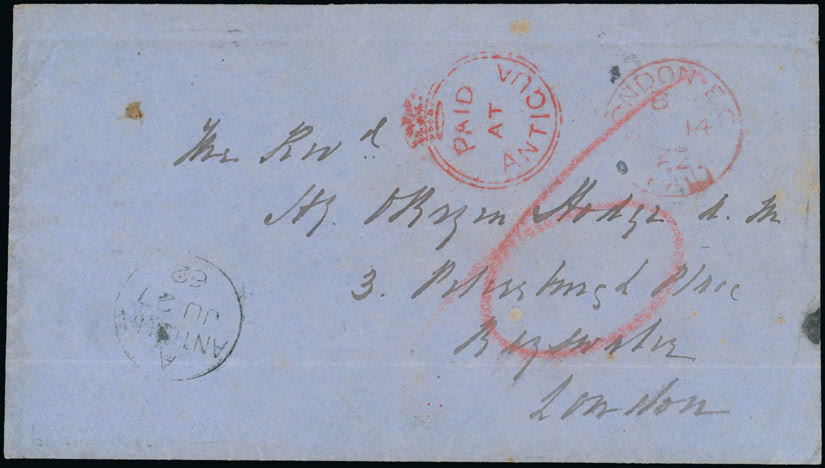 PAID
AT
ANTIGUA
LONDON E.C
8
14
62
PAID
The Revd
Hy. OBryen Hodge A. M
3. Petersburgh Place
Bayswater
London
A
ANTIGUA
JU
62